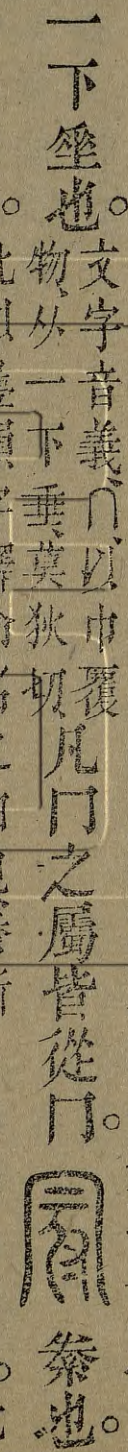 一下埀也。
文字音義、冂、以巾覆
物、从一下垂、莫狄切
凡冂之屬皆從冂。
絭也。